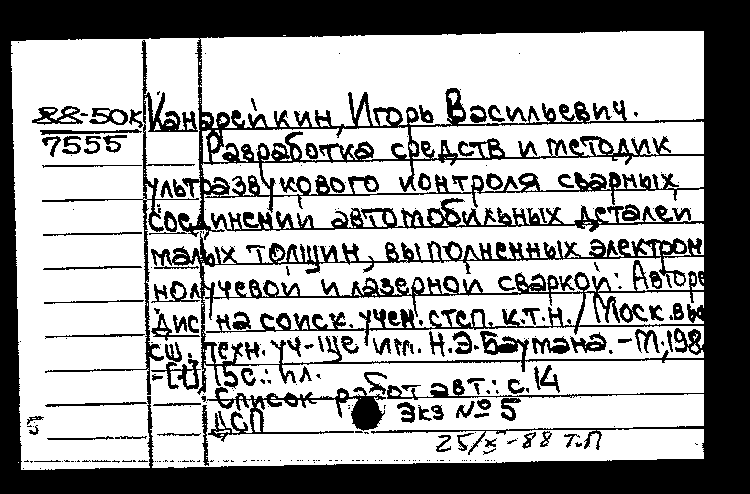 88-50к Канарейкин, Игорь Васильевич.
7555 Разработка средств и методик
ультразвукового контроля сварных
соединений автомобильных деталей
малых толщин, выполненных электрон
нолучевой и лазерной сваркой: Авторе
дис на соиск. учен. степ. к.т.н. / Моск. вы
сш. техн. уч-ще им. Н.Э.Баумана. - М, 198
-[1], 15с.: ил.
Список работ авт.: с. 14
5 ДСП Экз № 5
25/X-88 т.п